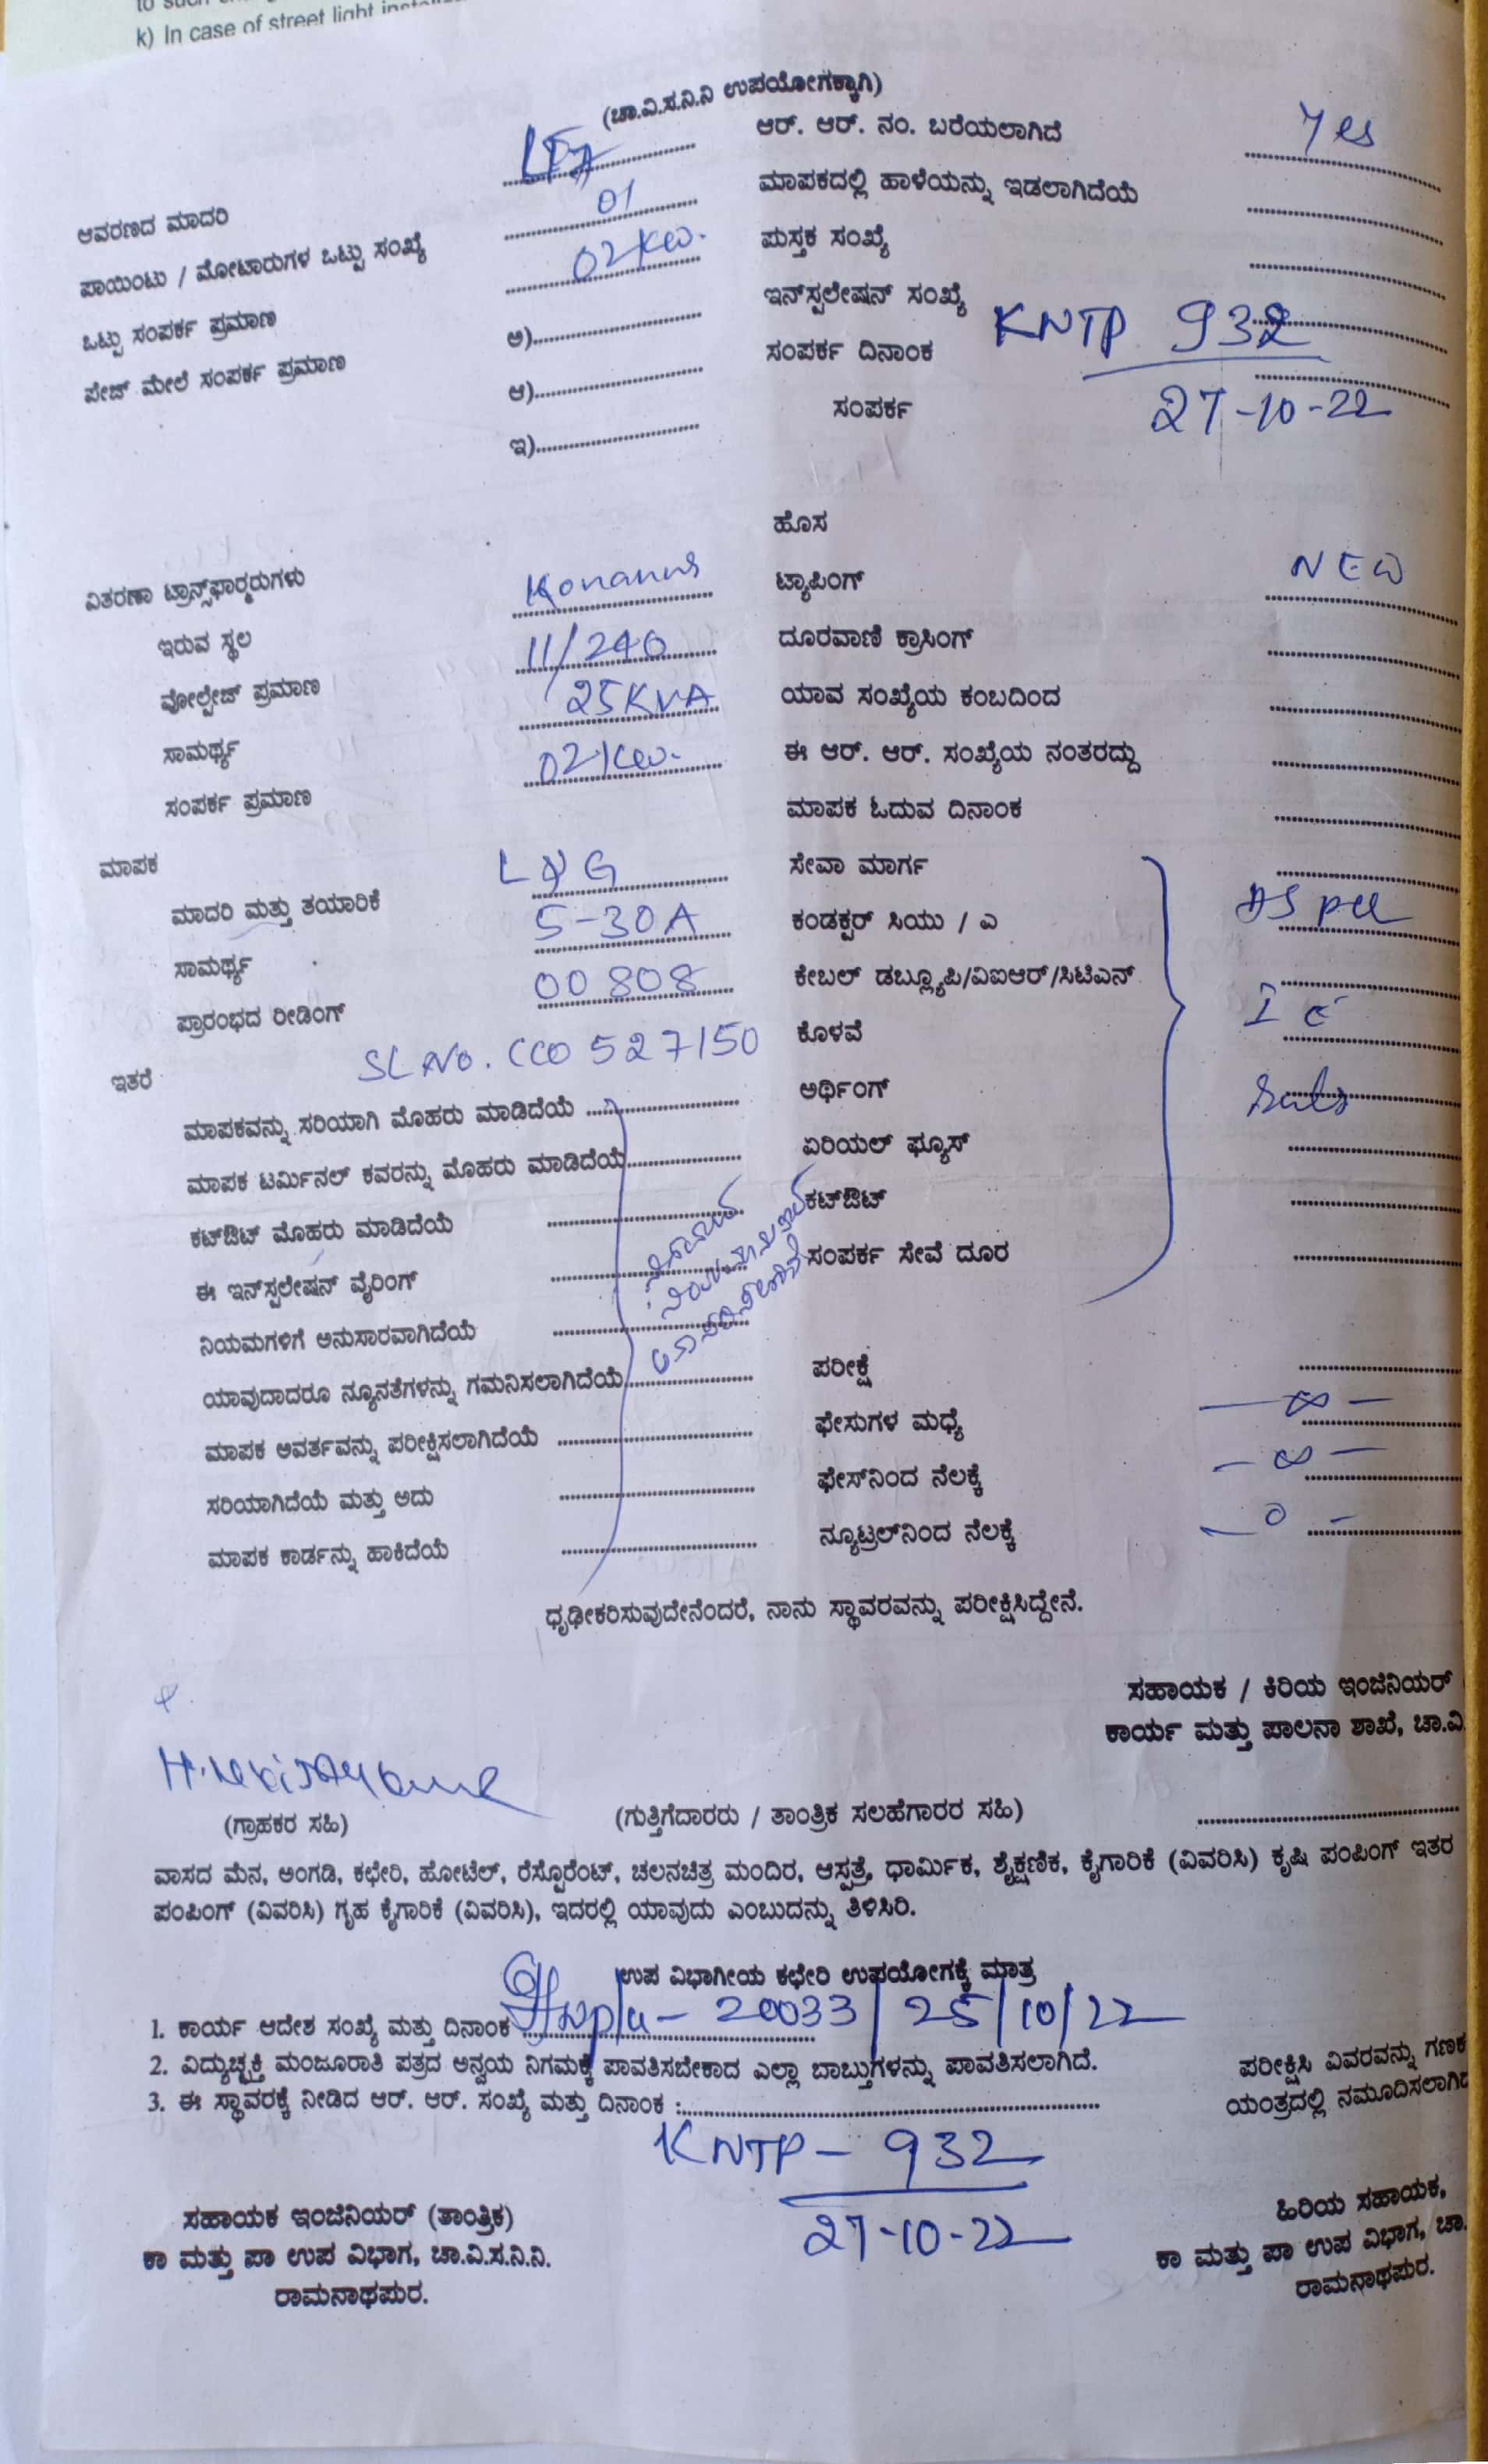 k) In case of street light
(ಚಾ.ವಿ.ಸ.ನಿ.ನಿ ಉಪಯೋಗಕ್ಕಾಗಿ)
ಆವರಣದ ಮಾದರಿ
ಪಾಯಿಂಟು / ಮೋಟಾರುಗಳ ಒಟ್ಟು ಸಂಖ್ಯೆ 01
ಒಟ್ಟು ಸಂಪರ್ಕ ಪ್ರಮಾಣ 02 Kw.
ಪೇಜ್ ಮೇಲೆ ಸಂಪರ್ಕ ಪ್ರಮಾಣ ಅ)
ಆ)
ಇ)
ಆರ್. ಆರ್. ನಂ. ಬರೆಯಲಾಗಿದೆ Yes
ಮಾಪಕದಲ್ಲಿ ಹಾಳೆಯನ್ನು ಇಡಲಾಗಿದೆಯೆ
ಪುಸ್ತಕ ಸಂಖ್ಯೆ
ಇನ್‌ಸ್ಟಲೇಷನ್ ಸಂಖ್ಯೆ KNTP 932
ಸಂಪರ್ಕ ದಿನಾಂಕ 27-10-22
ಸಂಪರ್ಕ
ವಿತರಣಾ ಟ್ರಾನ್ಸ್‌ಫಾರ್ಮರುಗಳು
ಇರುವ ಸ್ಥಲ
ವೋಲ್ಟೇಜ್ ಪ್ರಮಾಣ 11/240
ಸಾಮರ್ಥ್ಯ 25KVA
ಸಂಪರ್ಕ ಪ್ರಮಾಣ 02 Kw.
ಹೊಸ
ಟ್ಯಾಪಿಂಗ್ NEW
ದೂರವಾಣಿ ಕ್ರಾಸಿಂಗ್
ಯಾವ ಸಂಖ್ಯೆಯ ಕಂಬದಿಂದ
ಈ ಆರ್. ಆರ್. ಸಂಖ್ಯೆಯ ನಂತರದ್ದು
ಮಾಪಕ ಓದುವ ದಿನಾಂಕ
ಮಾಪಕ
ಮಾದರಿ ಮತ್ತು ತಯಾರಿಕೆ
ಸಾಮರ್ಥ್ಯ 5-30A
ಪ್ರಾರಂಭದ ರೀಡಿಂಗ್ 00808
ಇತರೆ SL No. CCO 527150
ಮಾಪಕವನ್ನು ಸರಿಯಾಗಿ ಮೊಹರು ಮಾಡಿದೆಯೆ
ಮಾಪಕ ಟರ್ಮಿನಲ್ ಕವರನ್ನು ಮೊಹರು ಮಾಡಿದೆಯೆ
ಕಟ್‌ಔಟ್ ಮೊಹರು ಮಾಡಿದೆಯೆ
ಈ ಇನ್‌ಸ್ಟಲೇಷನ್ ವೈರಿಂಗ್
ನಿಯಮಗಳಿಗೆ ಅನುಸಾರವಾಗಿದೆಯೆ
ಯಾವುದಾದರೂ ನ್ಯೂನತೆಗಳನ್ನು ಗಮನಿಸಲಾಗಿದೆಯೆ
ಮಾಪಕ ಅವರ್ತವನ್ನು ಪರೀಕ್ಷಿಸಲಾಗಿದೆಯೆ
ಸರಿಯಾಗಿದೆಯೆ ಮತ್ತು ಅದು
ಮಾಪಕ ಕಾರ್ಡನ್ನು ಹಾಕಿದೆಯೆ
ಸೇವಾ ಮಾರ್ಗ
ಕಂಡಕ್ಟರ್ ಸಿಯು / ಎ
ಕೇಬಲ್ ಡಬ್ಲ್ಯೂಪಿ/ವಿಐಆರ್/ಸಿಟಿಎನ್
ಕೊಳವೆ
ಅರ್ಥಿಂಗ್
ಏರಿಯಲ್ ಫ್ಯೂಸ್
ಕಟ್‌ಔಟ್
ಸಂಪರ್ಕ ಸೇವೆ ದೂರ
ಪರೀಕ್ಷೆ
ಫೇಸುಗಳ ಮಧ್ಯೆ — ∞ —
ಫೇಸ್‌ನಿಂದ ನೆಲಕ್ಕೆ — ∞ —
ನ್ಯೂಟ್ರಲ್‌ನಿಂದ ನೆಲಕ್ಕೆ — 0 —
ಧೃಢೀಕರಿಸುವುದೇನೆಂದರೆ, ನಾನು ಸ್ಥಾವರವನ್ನು ಪರೀಕ್ಷಿಸಿದ್ದೇನೆ.
ಸಹಾಯಕ / ಕಿರಿಯ ಇಂಜಿನಿಯರ್
ಕಾರ್ಯ ಮತ್ತು ಪಾಲನಾ ಶಾಖೆ, ಚಾ.ವಿ
(ಗ್ರಾಹಕರ ಸಹಿ) (ಗುತ್ತಿಗೆದಾರರು / ತಾಂತ್ರಿಕ ಸಲಹೆಗಾರರ ಸಹಿ)
ವಾಸದ ಮೆನ, ಅಂಗಡಿ, ಕಛೇರಿ, ಹೋಟೆಲ್, ರೆಸ್ಟೊರೆಂಟ್, ಚಲನಚಿತ್ರ ಮಂದಿರ, ಆಸ್ಪತ್ರೆ, ಧಾರ್ಮಿಕ, ಶೈಕ್ಷಣಿಕ, ಕೈಗಾರಿಕೆ (ವಿವರಿಸಿ) ಕೃಷಿ ಪಂಪಿಂಗ್ ಇತರ
ಪಂಪಿಂಗ್ (ವಿವರಿಸಿ) ಗೃಹ ಕೈಗಾರಿಕೆ (ವಿವರಿಸಿ), ಇದರಲ್ಲಿ ಯಾವುದು ಎಂಬುದನ್ನು ತಿಳಿಸಿರಿ.
ಉಪ ವಿಭಾಗೀಯ ಕಛೇರಿ ಉಪಯೋಗಕ್ಕೆ ಮಾತ್ರ
1. ಕಾರ್ಯ ಆದೇಶ ಸಂಖ್ಯೆ ಮತ್ತು ದಿನಾಂಕ 20033/25/10/22
2. ವಿದ್ಯುಚ್ಛಕ್ತಿ ಮಂಜೂರಾತಿ ಪತ್ರದ ಅನ್ವಯ ನಿಗಮಕ್ಕೆ ಪಾವತಿಸಬೇಕಾದ ಎಲ್ಲಾ ಬಾಬ್ತುಗಳನ್ನು ಪಾವತಿಸಲಾಗಿದೆ.
3. ಈ ಸ್ಥಾವರಕ್ಕೆ ನೀಡಿದ ಆರ್. ಆರ್. ಸಂಖ್ಯೆ ಮತ್ತು ದಿನಾಂಕ :
KNTP - 932
27-10-22
ಪರೀಕ್ಷಿಸಿ ವಿವರವನ್ನು ಗಣಕ
ಯಂತ್ರದಲ್ಲಿ ನಮೂದಿಸಲಾಗಿದ
ಸಹಾಯಕ ಇಂಜಿನಿಯರ್ (ತಾಂತ್ರಿಕ)
ಕಾ ಮತ್ತು ಪಾ ಉಪ ವಿಭಾಗ, ಚಾ.ವಿ.ಸ.ನಿ.ನಿ.
ರಾಮನಾಥಪುರ.
ಹಿರಿಯ ಸಹಾಯಕ,
ಕಾ ಮತ್ತು ಪಾ ಉಪ ವಿಭಾಗ, ಚಾ.
ರಾಮನಾಥಪುರ.